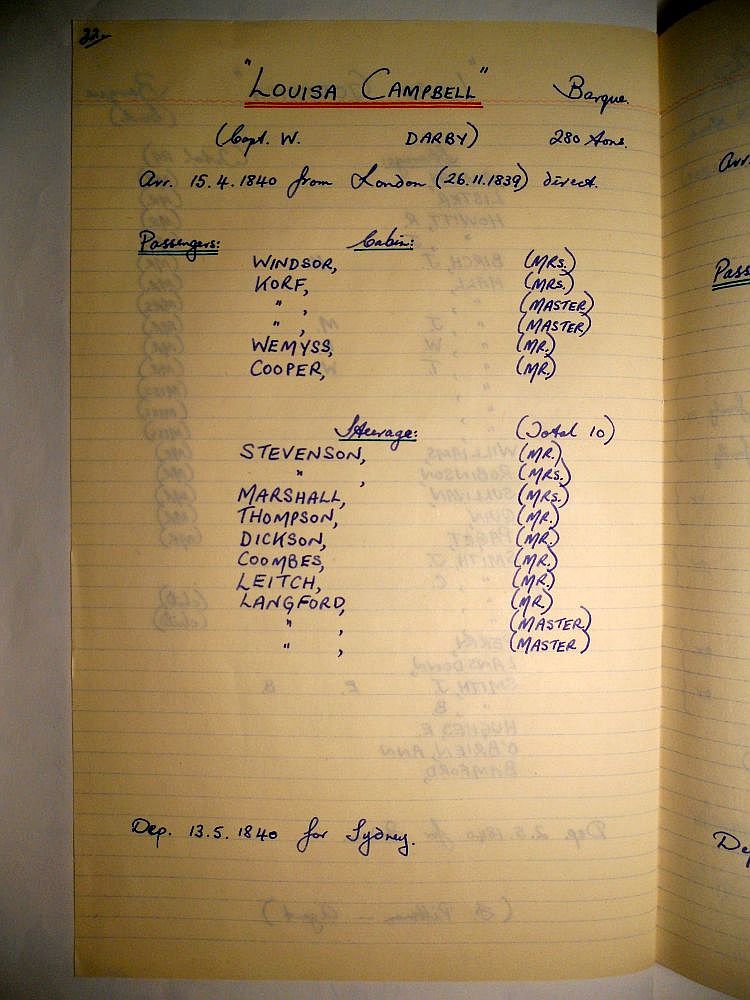 22.
"LOUISA CAMPBELL" Barque.
(Capt. W. DARBY) 280 tons.
Arr. 15.4.1840 from London (26.11.1839) direct.
Passengers: Cabin:
WINDSOR, (MRS.)
KORF, (MRS.)
" , (MASTER)
" , (MASTER)
WEMYSS, (MR.)
COOPER, (MR.)
Steerage: (Total 10)
STEVENSON, (MR.)
" , (MRS.)
MARSHALL, (MRS.)
THOMPSON, (MR.)
DICKSON, (MR.)
COOMBES, (MR.)
LEITCH, (MR.)
LANGFORD, (MR.)
" , (MASTER.)
" , (MASTER)
Dep. 13.5.1840 for Sydney.
Arr.
Pass
De